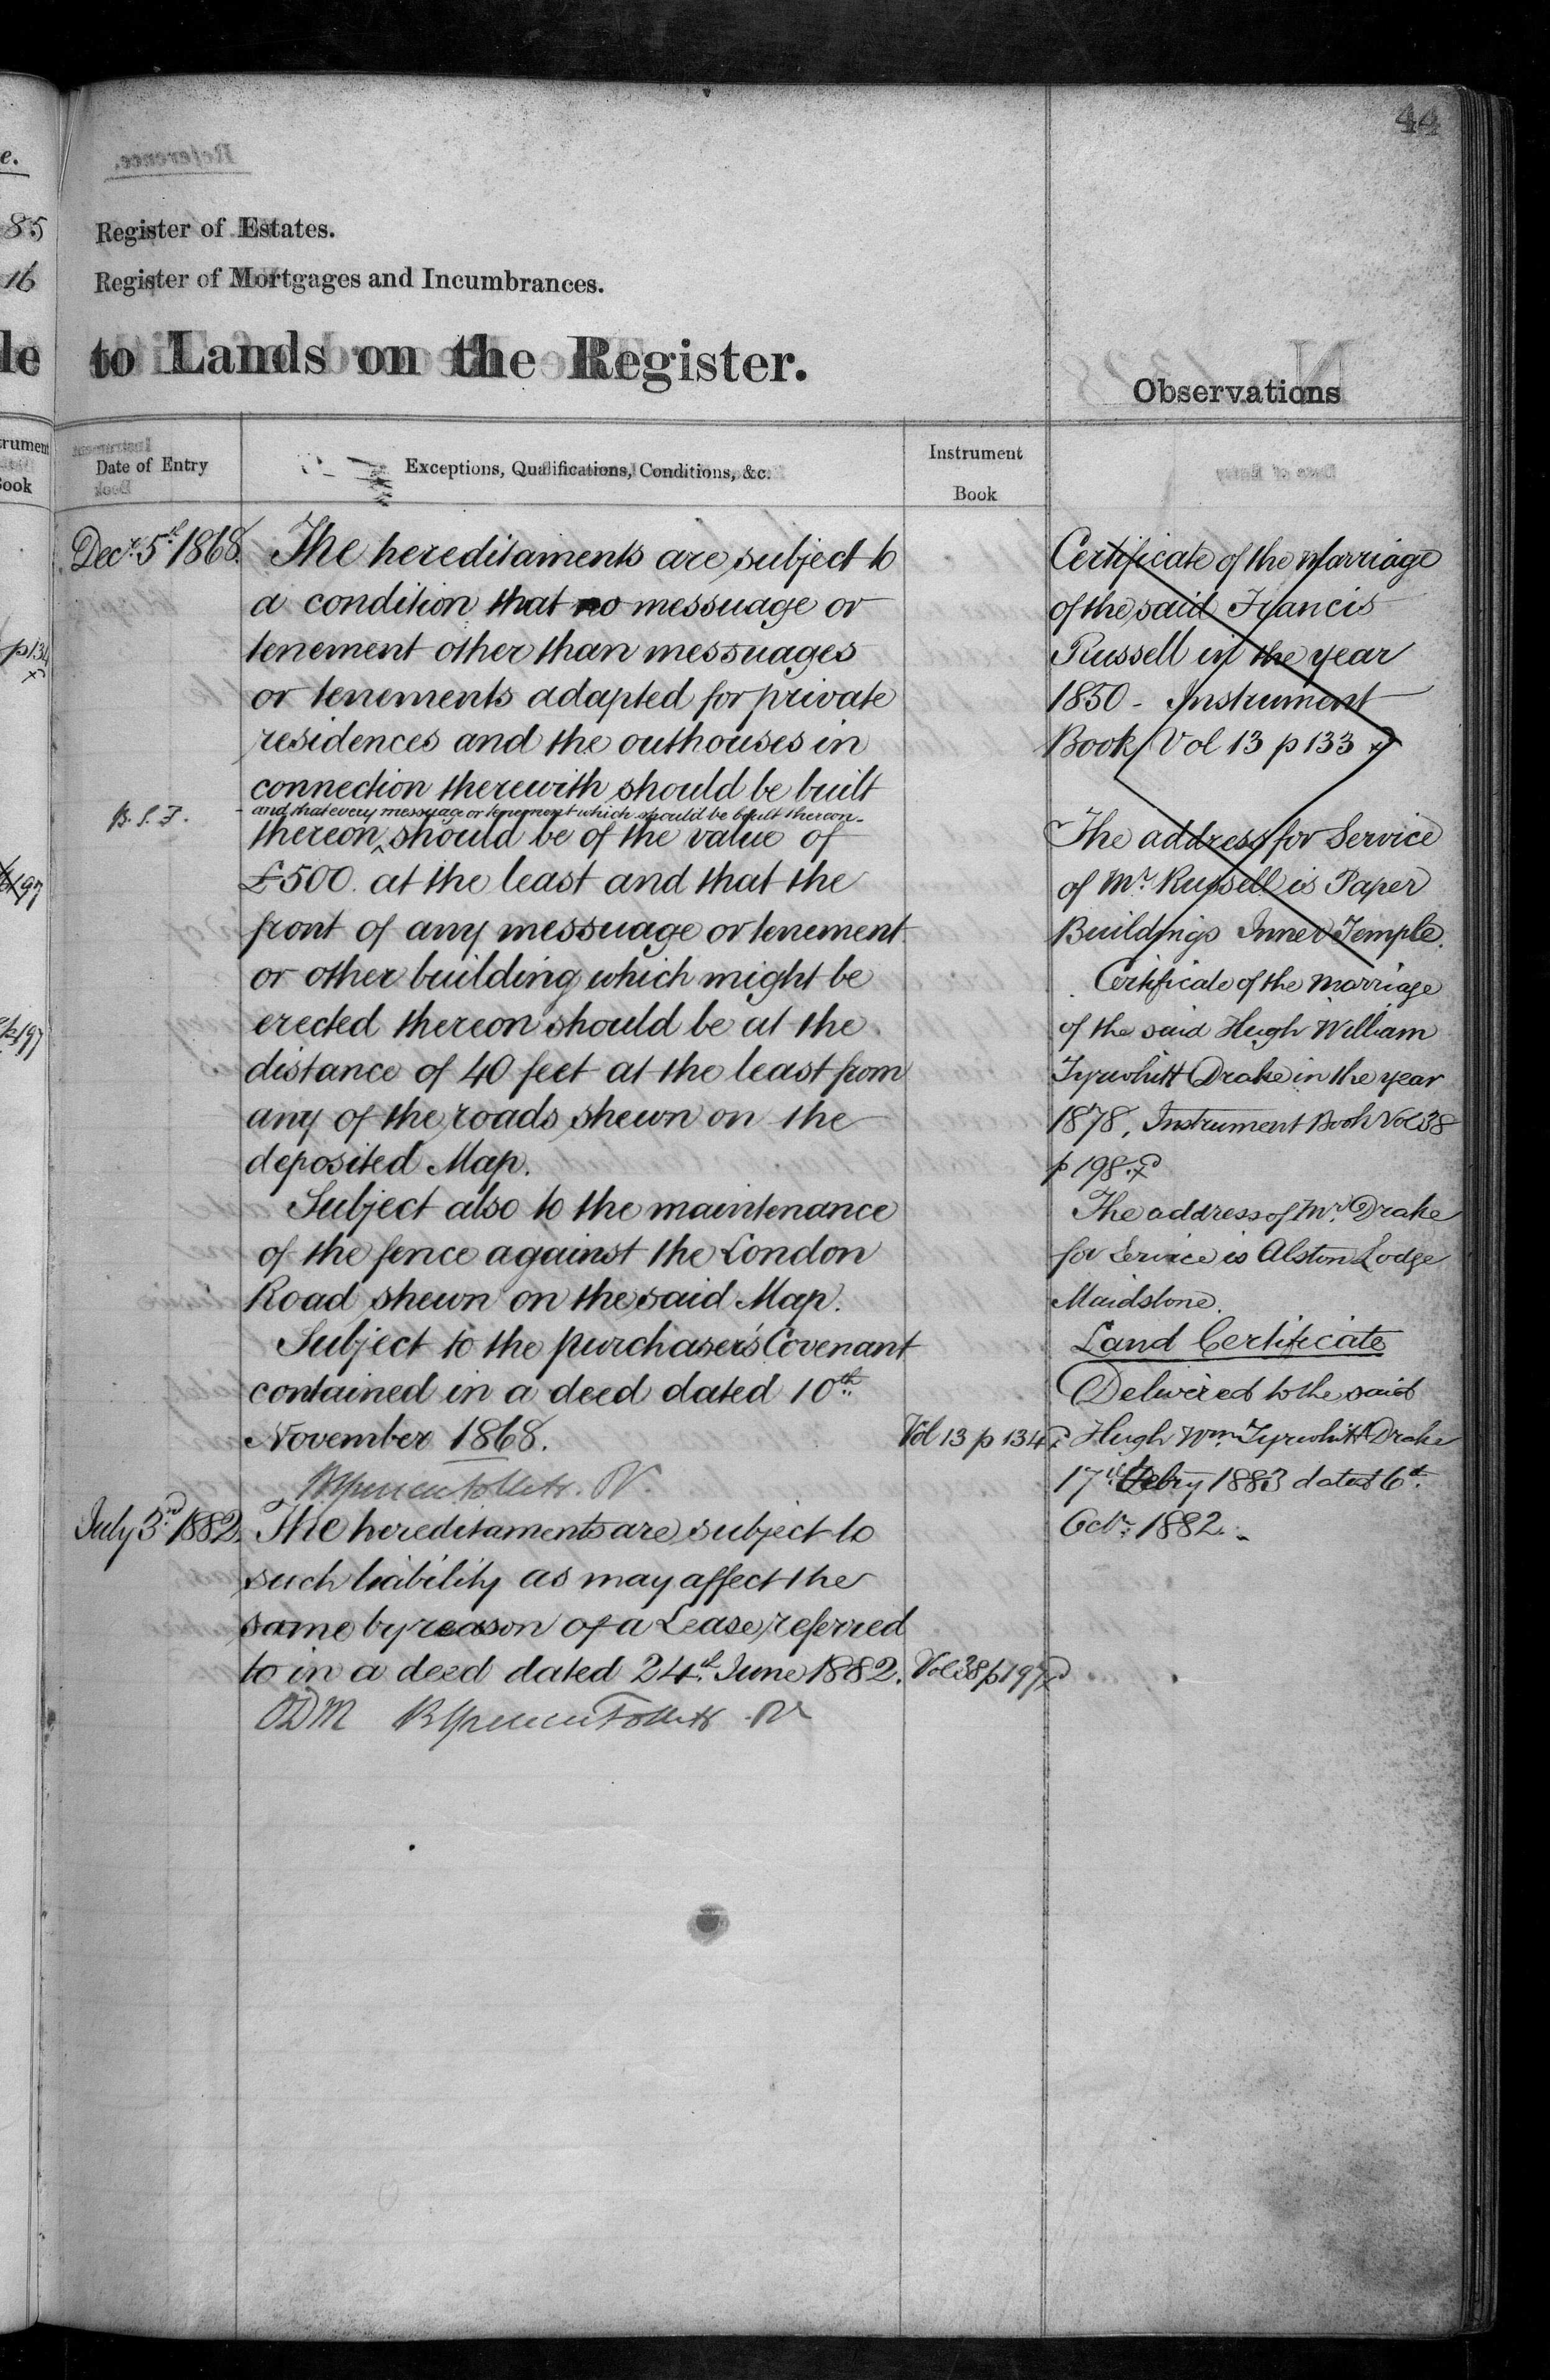 44
Register of Estates.
Register of Mortgages and Incumbrances.
to Lands on the Register.
Observations
Date of Entry
Exceptions, Qualifications, Conditions, &c.
Instrument
Book
Decr. 5th 1868.
The hereditaments are subject to
a condition that no messuage or
tenement other than messuages
or tenements adapted for private
residences and the outhouses in
connection therewith should be built
and that every messuage or tenement which should be built thereon
B. S. F.
thereon should be of the value of
£500. at the least and that the
front of any messuage or tenement
or other building which might be
erected thereon should be at the
distance of 40 feet at the least from
any of the roads shewn on the
deposited Map.
Subject also to the maintenance
of the fence against the London
Road shewn on the said Map.
Subject to the purchaser's Covenant
contained in a deed dated 10th
November 1868.
Vol 13 p 134
July 3rd 1882.
The hereditaments are subject to
such liability as may affect the
same by reason of a Lease referred
to in a deed dated 24th June 1882.
Vol 38 p 197
ODM
Certificate of the Marriage
of the said Francis
Russell in the year
1850 - Instrument
Book Vol 13 p 133
The address for Service
of Mr. Russell is Paper
Buildings Inner Temple.
Certificate of the Marriage
of the said Hugh William
Tyrwhitt Drake in the year
1878, Instrument Book Vol 38
p 198.
The address of Mr. Drake
for Service is Alston Lodge
Maidstone.
Land Certificate
Delivered to the said
Hugh Wm. Tyrwhitt Drake
17th Febry 1883 dated 6th
Octr. 1882.
85
16
le
trument
Book
p134